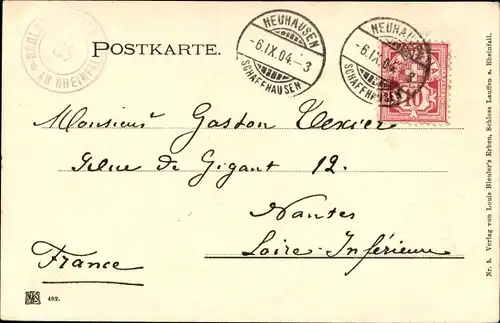 POSTKARTE.
NEUHAUSEN
-6.IX.04.-3
SCHAFFHAUSEN
NEUHAUSEN
-6.IX.04.-
SCHAFFHAUSEN
10
AM RHEINFALL
Monsieur Gaston Texier
Rue de Gigant 12.
Nantes
Loire-Inférieure
France
482.
Nr. 5. Verlag von Louis Bleuler's Erben, Schloss Lauffen a. Rheinfall.